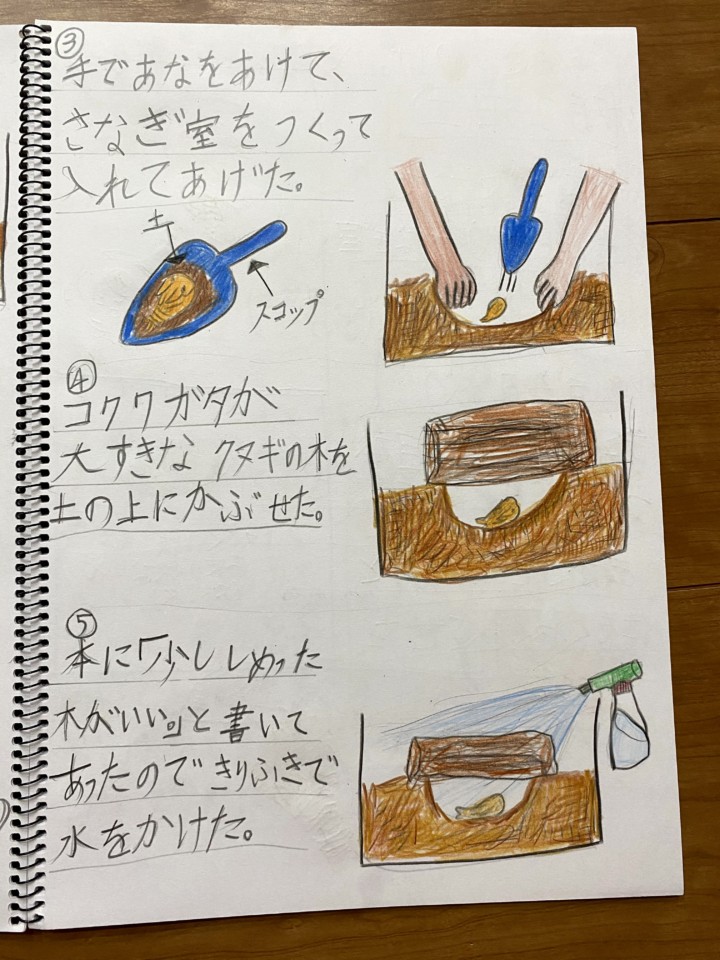 ③
手であなをあけて、
さなぎ室をつくって
入れてあげた。
土
スコップ
④
コクワガタが
大すきなクヌギの木を
土の上にかぶせた。
⑤
本に「少ししめった
木がいい。」と書いて
あったのできりふきで
水をかけた。